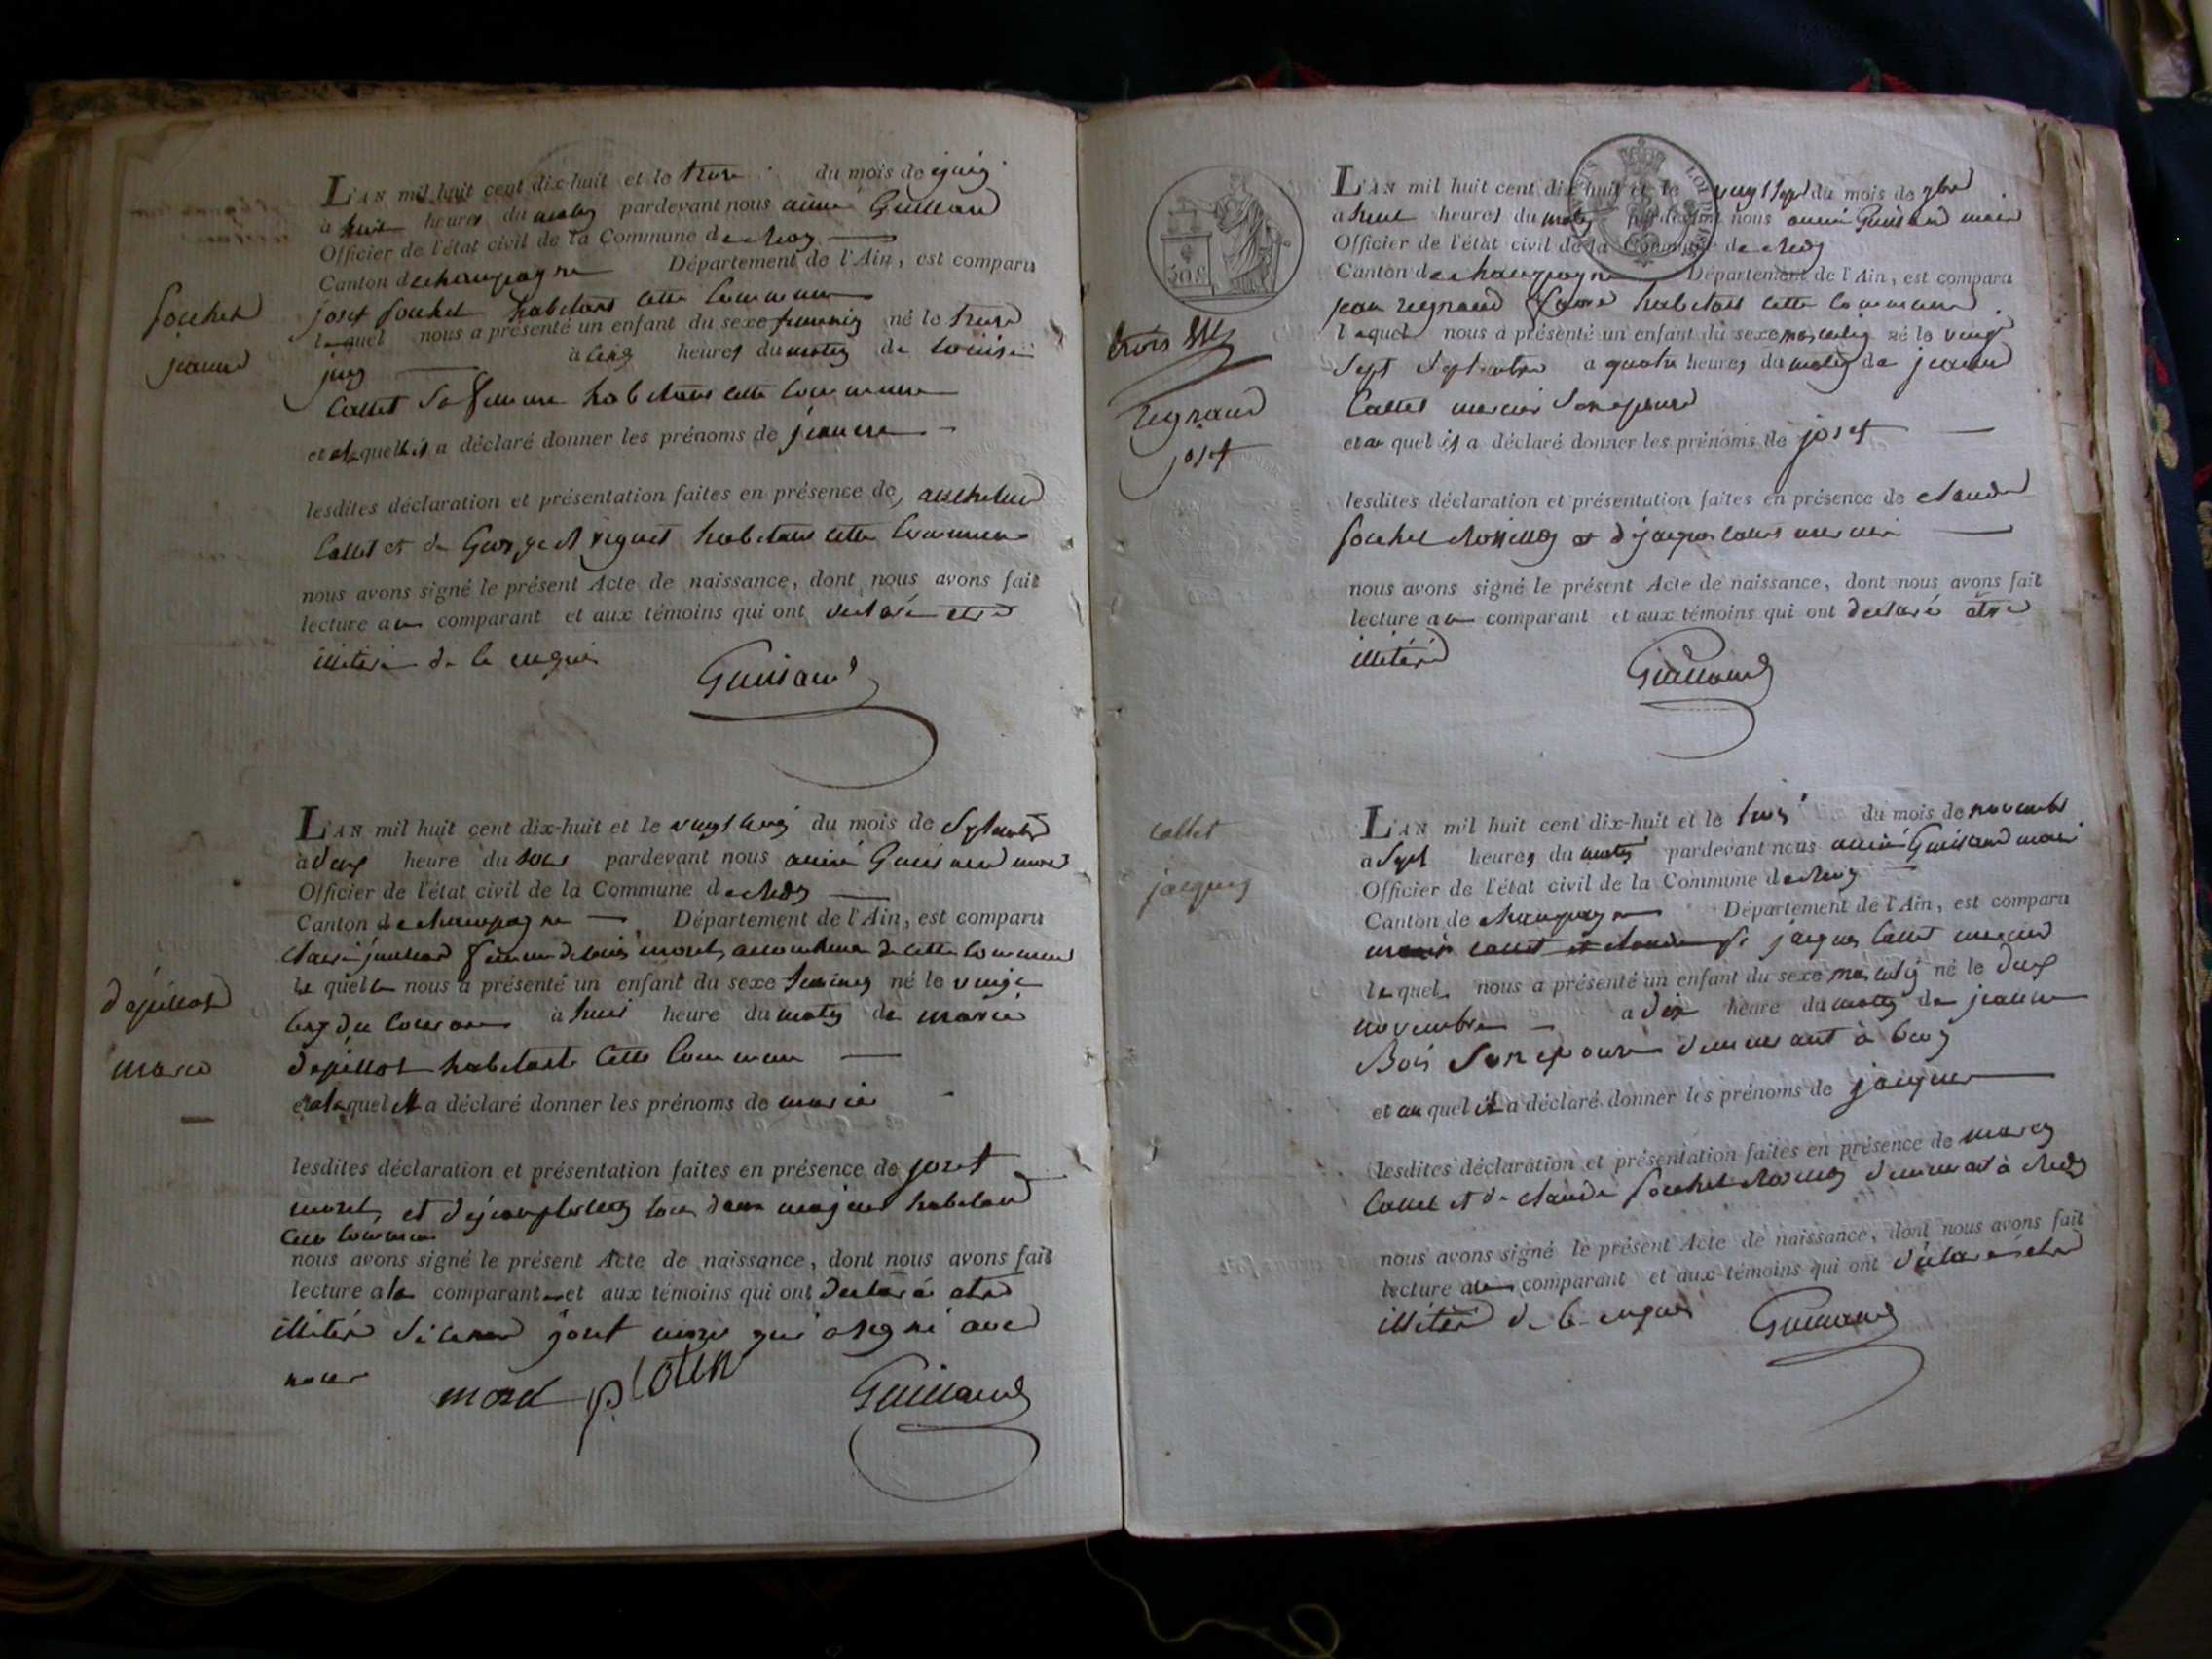 fouhet
jeanne
L'AN mil huit cent dix-huit et le treize du mois de juin
à huit heures du matin pardevant nous aimé Guilland
Officier de l'état civil de la Commune de
Canton de champagne Département de l'Ain, est comparu
josef fouhet habitans cette commune
lequel nous a présenté un enfant du sexe feminin né le treize
juin à cinq heures du matin de Louise
Callet sa femme habitans cette commune
et alaquelle il a déclaré donner les prénoms de jeanne
lesdites déclaration et présentation faites en présence de anthelme
Callet et de George habitans cette commune
nous avons signé le présent Acte de naissance, dont nous avons fait
lecture au comparant et aux témoins qui ont declaré etre
illiteré de ce enquis
Guilland
dépillot
marie
L'AN mil huit cent dix-huit et le vingt cinq du mois de Septembre
à deux heure du soir pardevant nous aimé Guilland maire
Officier de l'état civil de la Commune de
Canton de champagne Département de l'Ain, est comparu
femme de moret, de cette commune
la quelle nous a présenté un enfant du sexe feminin né le vingt
cinq du courant à huit heure du matin de marie
dépillot habitante cette commune
et alaquel elle a déclaré donner les prénoms de marie
lesdites déclaration et présentation faites en présence de josef
moret et de tous deux majeurs habitans
cette commune
nous avons signé le présent Acte de naissance, dont nous avons fait
lecture a la comparante et aux témoins qui ont declaré etre
illiteré josef qui a signé avec
nous
Guilland
30 C
LOI DE 18
trois
regnaud
josef
L'AN mil huit cent dix huit et le vingt sept du mois de 7bre
à huit heures du matin pardevant nous aimé Guilland maire
Officier de l'état civil de la Commune de
Canton de champagne Département de l'Ain, est comparu
jean regnaud habitans cette commune
lequel nous a présenté un enfant du sexe masculin né le vingt
sept Septembre a quatre heures du matin de jeanne
Callet mercier son epouse
et au quel il a déclaré donner les prénoms de josef
lesdites déclaration et présentation faites en présence de claude
fouhet et de jacques Callet mercier
nous avons signé le présent Acte de naissance, dont nous avons fait
lecture au comparant et aux témoins qui ont declaré être
illiteré
Guilland
callet
jacques
L'AN mil huit cent dix-huit et le trois du mois de novembre
à Sept heures du matin pardevant nous aimé Guilland maire
Officier de l'état civil de la Commune de
Canton de champagne Département de l'Ain, est comparu
jacques Callet mercier
lequel nous a présenté un enfant du sexe masculin né le deux
novembre a dix heure du matin de jeanne
Bois son epouse demeurant à
et au quel il a déclaré donner les prénoms de jacques
lesdites déclaration et présentation faites en présence de
Callet et de claude fouhet demeurant à
nous avons signé le présent Acte de naissance, dont nous avons fait
lecture au comparant et aux témoins qui ont déclaré etre
illiteré de ce enquis
Guilland